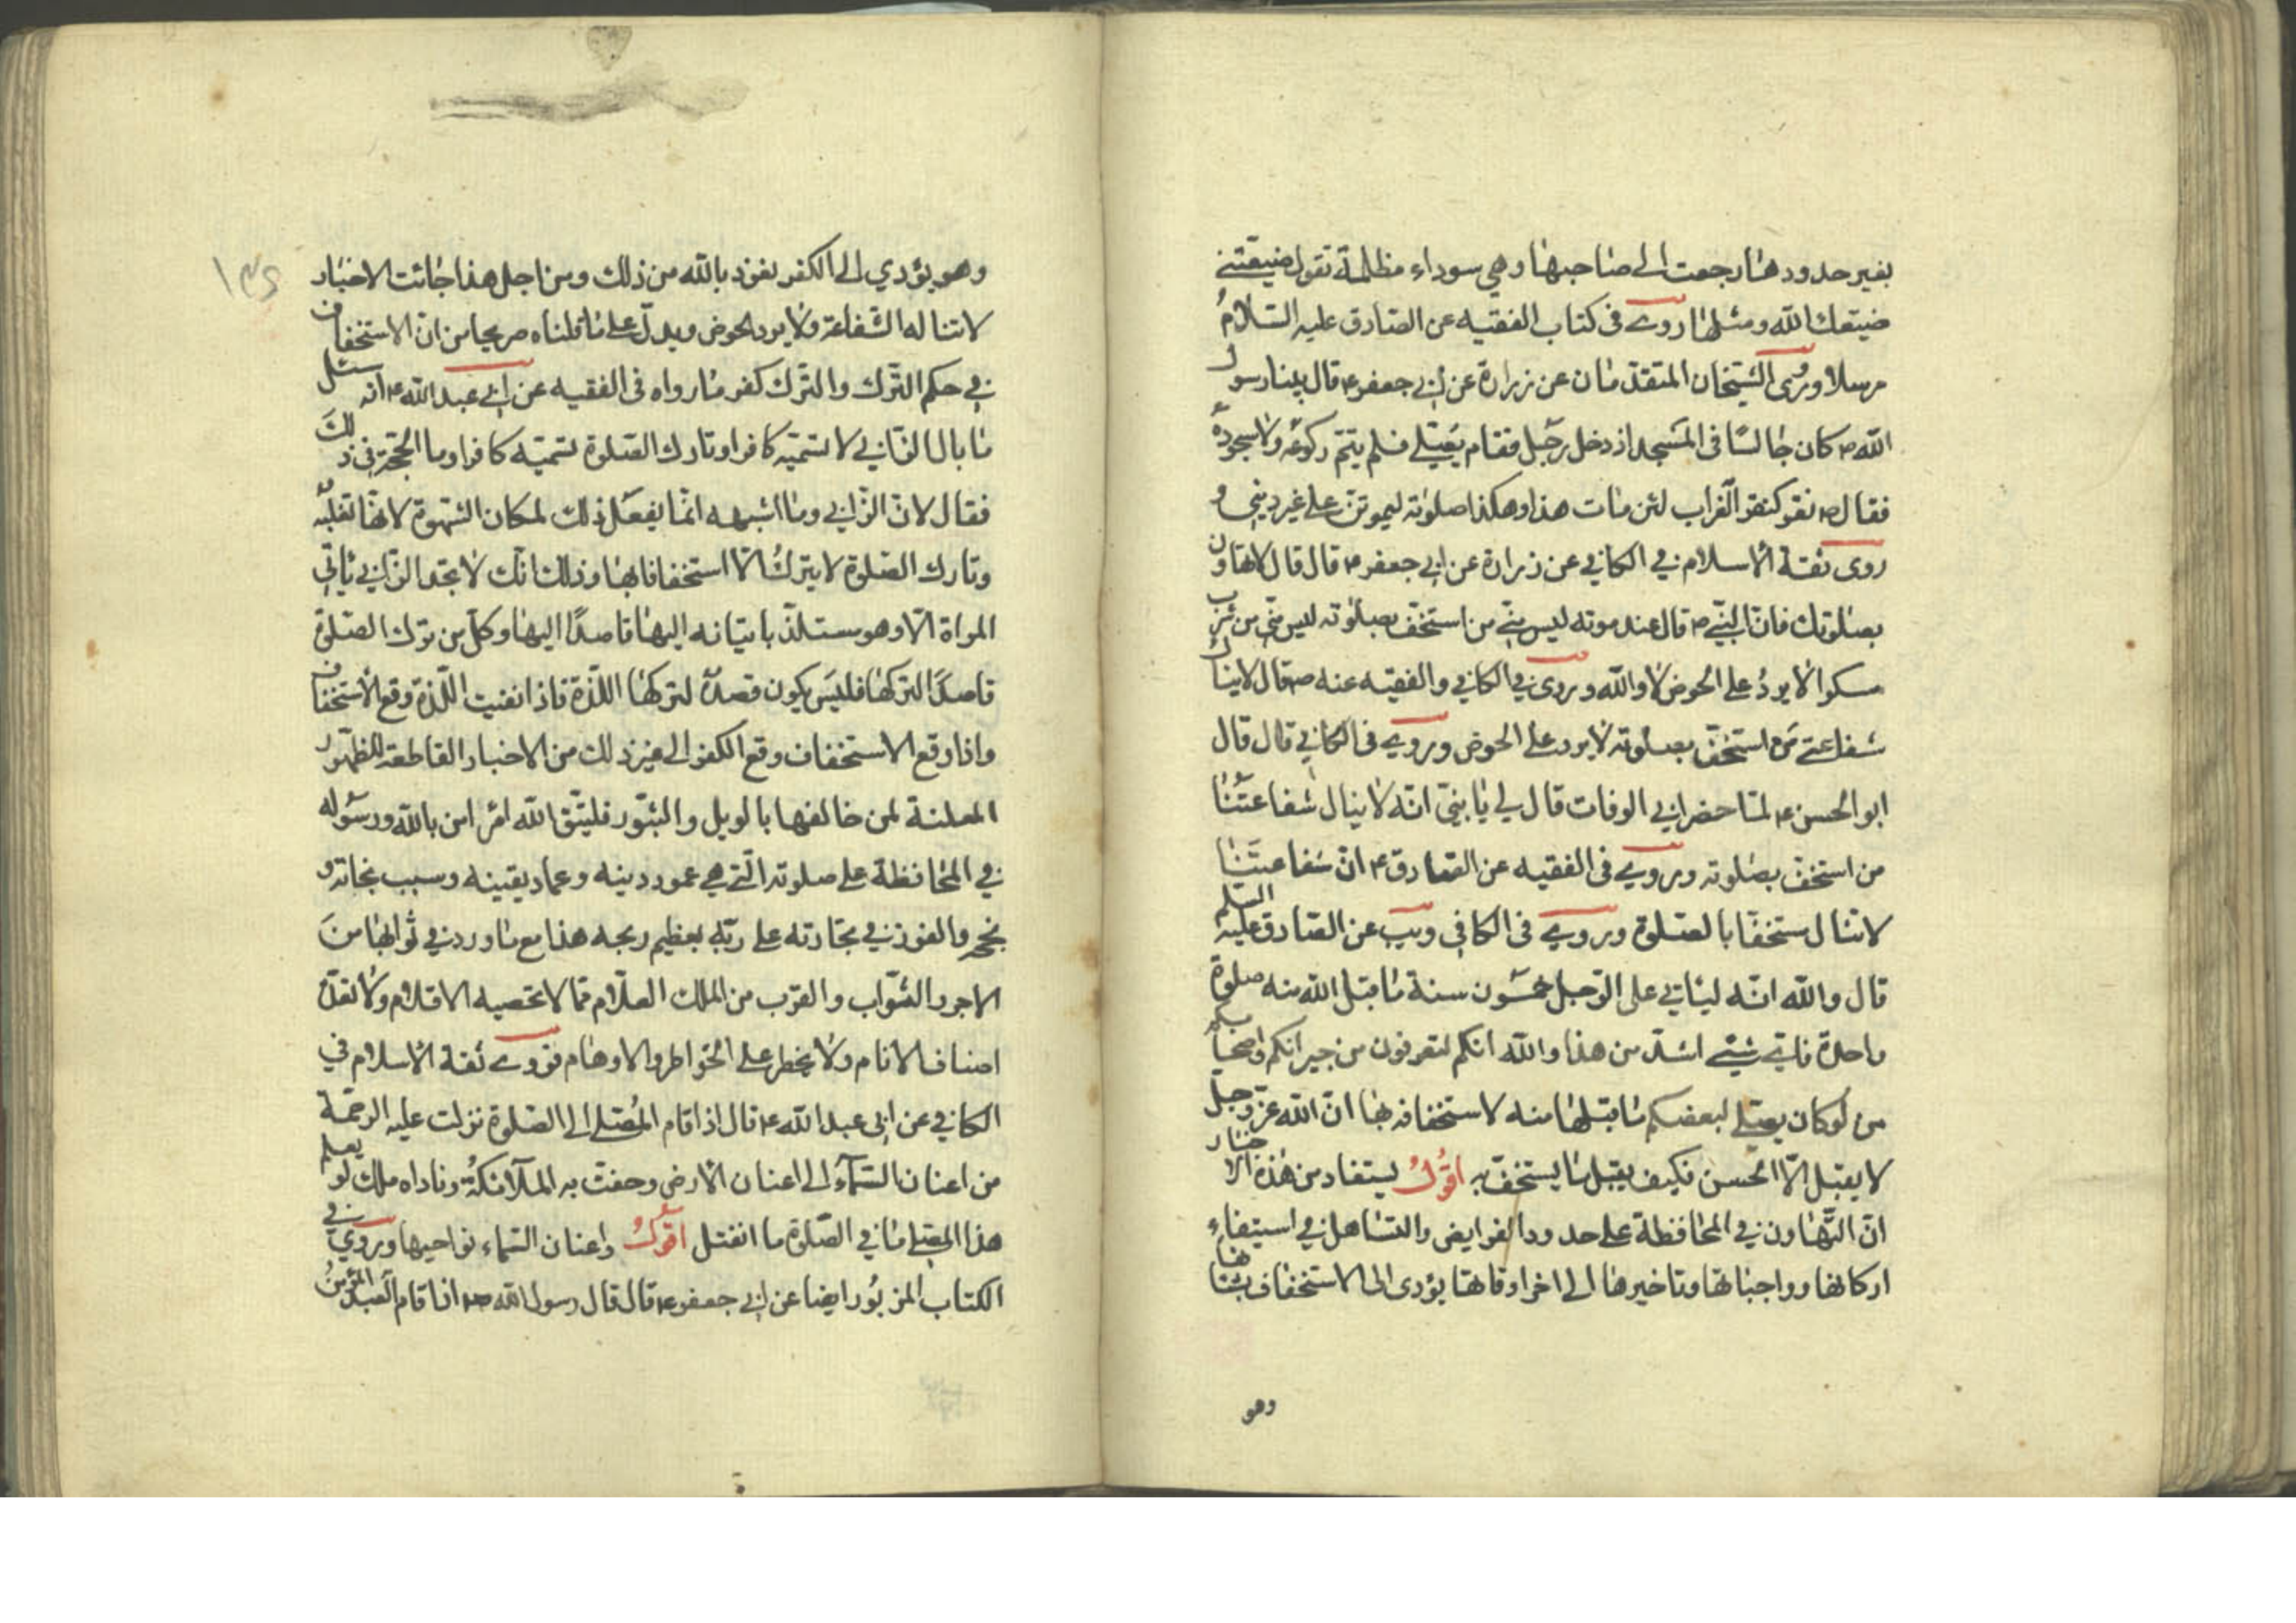 بغير حدودها رجعت الى صاحبها وهي سوداء مظلمة تقول ضيعتني
ضيعك الله ومثلها روي في كتاب الفقيه عن الصادق عليه السلام
مرسلا وروى الشيخان المتقدمان عن زرارة عن ابي جعفر ع قال بينا رسول
الله ص كان جالسا في المسجد اذ دخل رجل فقام يصلي فلم يتم ركوعه ولا سجوده
فقال ص نقر كنقر الغراب لئن مات هذا وهكذا صلوته ليموتن على غير ديني و
روى ثقة الاسلام في الكافي عن زرارة عن ابي جعفر ع قال قال لا تهاون
بصلوتك فان النبي ص قال عند موته ليس مني من استخف بصلوته ليس مني من شرب
مسكرا لا يرد على الحوض لا والله وروى في الكافي والفقيه عنه ص قال لا ينال
شفاعتي من استخف بصلوته لا يرد على الحوض وروي في الكافي قال قال
ابو الحسن ع لما حضر ابي الوفات قال لي يا بني انه لا ينال شفاعتنا
من استخف بصلوته وروي في الفقيه عن الصادق ع ان شفاعتنا
لا تنال مستخفا بالصلوة وروي في الكافي ويب عن الصادق عليه السلم
قال والله انه ليأتي على الرجل خمسون سنة ما قبل الله منه صلوة
واحدة فاي شيء اشد من هذا والله انكم لتعرفون من جيرانكم واصحابكم
من لو كان يصلي لبعضكم ما قبلها منه لاستخفافه بها ان الله عز وجل
لا يقبل الا الحسن فكيف يقبل ما يستخف به اقول يستفاد من هذه الاخبار
ان التهاون في المحافظة على حدود الفرايض والتساهل في استيفاء
اركانها وواجباتها وتاخيرها الى اخر اوقاتها يؤدى الى الاستخفاف بشانها
وهو
وهو يؤدي الى الكفر نعوذ بالله من ذلك ومن اجل هذا جائت الاخبار
لا تناله الشفاعة ولا يرد الحوض ويدل على ما قلناه صريحا من ان الاستخفاف
في حكم الترك والترك كفر ما رواه في الفقيه عن ابي عبد الله ع انه سئل
ما بال الزاني لا تسميه كافرا وتارك الصلوة تسميه كافرا وما الحجة في ذلك
فقال لان الزاني وما اشبهه انما يفعل ذلك لمكان الشهوة لانها تغلبه
وتارك الصلوة لا يتركها الا استخفافا بها وذلك انك لا تجد الزاني ياتي
المراة الا وهو مستلذ باتيانه اليها قاصدا اليها وكل من ترك الصلوة
قاصدا لتركها فليس يكون قصده لتركها اللذة فاذا نفيت اللذة وقع الاستخفاف
واذا وقع الاستخفاف وقع الكفر الى غير ذلك من الاخبار القاطعة للظهور
المعلنة لمن خالفها بالويل والثبور فليتق الله امرء امن بالله ورسوله
في المحافظة على صلوته التي هي عمود دينه وعماد يقينه وسبب نجاته و
نجحه والفوز في تجارته على ربه بعظيم ربحه هذا مع ما ورد في ثوابها من
الاجور الثواب والقرب من الملك العلام مما لا تحصيه الاقلام ولا تعده
اصناف الانام ولا يخطر على الخواطر والاوهام فروي ثقة الاسلام في
الكافي عن ابي عبد الله ع قال اذا قام المصلي الى الصلوة نزلت عليه الرحمة
من اعنان السماء الى اعنان الارض وحفت به الملائكة وناداه ملك لو يعلم
هذا المصلي ما في الصلوة ما انفتل اقول واعنان السماء نواحيها وروي في
الكتاب المزبور ايضا عن ابي جعفر ع قال قال رسول الله ص اذا قام العبد المؤمن